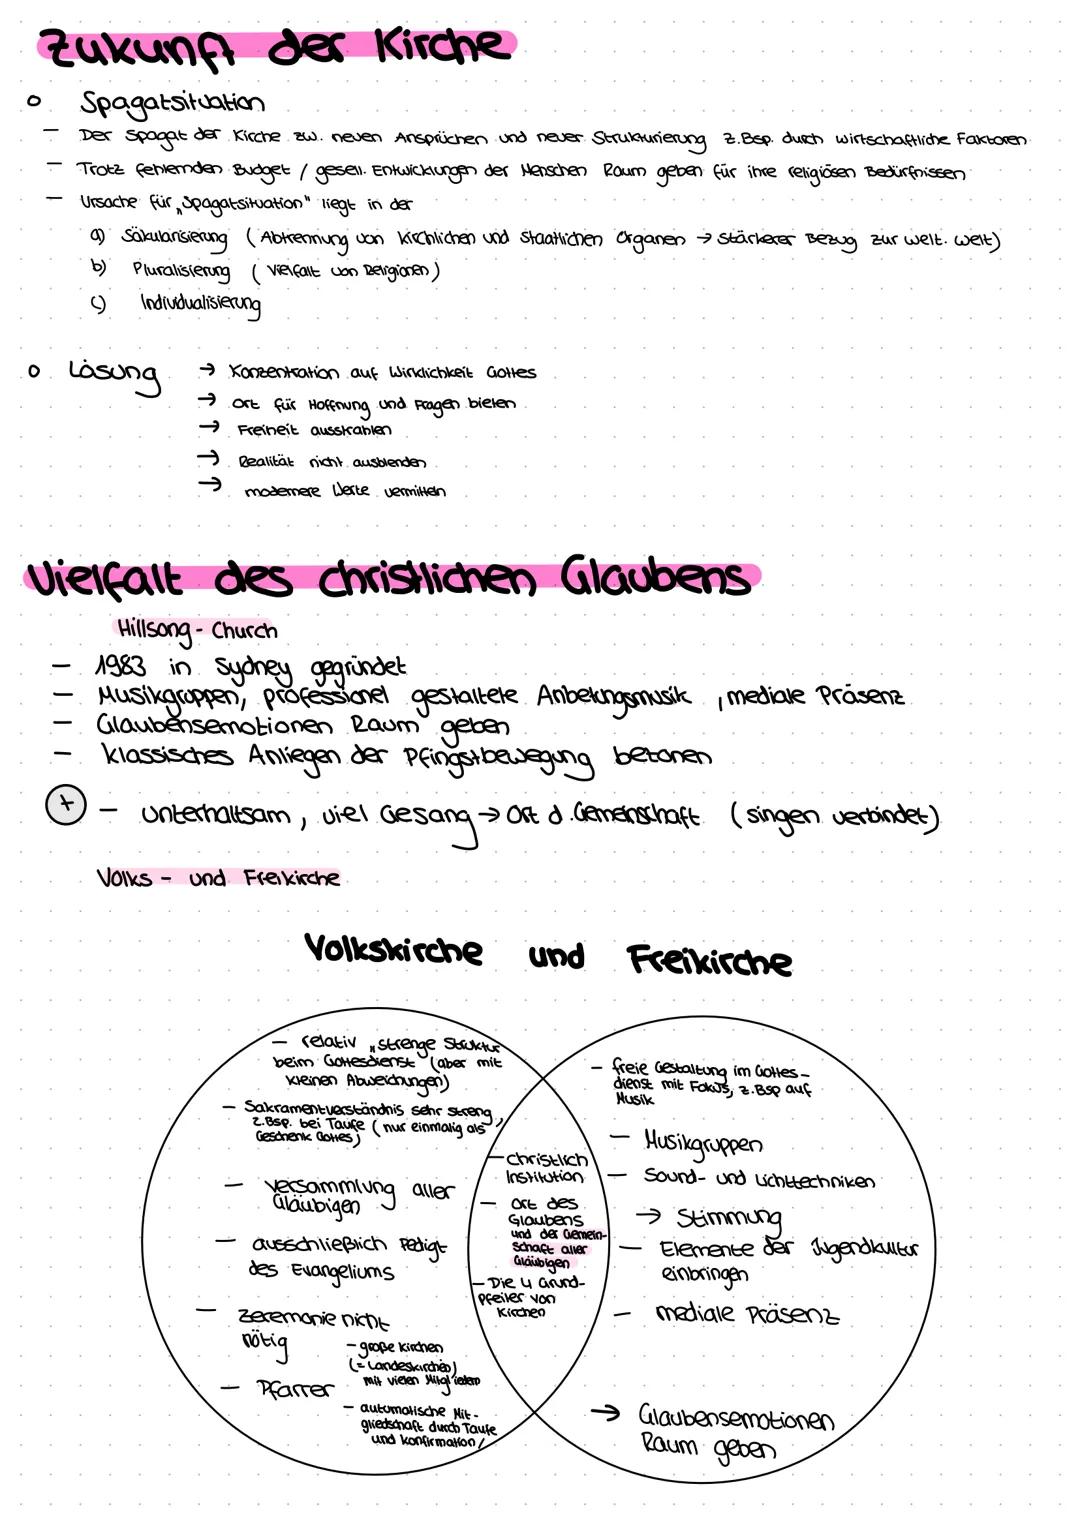 Zukunft der Kirche
o Spagatsituation
– Der Spagat der Kirche zw. neuen Ansprüchen und neuer Strukturierung z.Bsp. durch wirtschaftliche Faktoren
– Trotz fehlernden Budget / gesell. Entwicklungen der Menschen Raum geben für ihre religiösen Bedürfnissen
– Ursache für „Spagatsituation" liegt in der
a) Säkularisierung (Abtrennung von kirchlichen und staatlichen Organen → stärkerer Bezug zur welt. Welt)
b) Pluralisierung (Vielfalt von Religionen)
c) Individualisierung
o Lösung → Konzentration auf Wirklichkeit Gottes
→ Ort für Hoffnung und Fragen bieten
→ Freiheit ausstrahlen
→ Realität nicht ausblenden
→ modernere Werte vermitteln
Vielfalt des christlichen Glaubens
Hillsong - Church
– 1983 in Sydney gegründet
– Musikgruppen, professionel gestaltete Anbetungsmusik, mediale Präsenz
– Glaubensemotionen Raum geben
– klassisches Anliegen der Pfingstbewegung betonen
+ – unterhaltsam, viel Gesang → Ort d. Gemeinschaft (singen verbindet)
Volks - und Freikirche
Volkskirche und Freikirche
– relativ „strenge Struktur
beim Gottesdienst (aber mit
kleinen Abweichungen)
– Sakramentverständnis sehr streng,
z.Bsp. bei Taufe (nur einmalig als
Geschenk Gottes)
– Versammlung aller
Gläubigen
– ausschließlich Pedigt
des Evangeliums
– Zeremonie nicht
nötig
– große Kirchen
(= Landeskirchen)
mit vielen Mitgliedern
– Pfarrer
– automatische Mit-
gliedschaft durch Taufe
und Konfirmation/
– christlich
Institution
– Ort des
Glaubens
und der Gemein-
schaft aller
Gläubigen
– Die 4 Grund-
pfeiler von
Kirchen
– freie Gestaltung im Gottes-
dienst mit Fokus, z.Bsp auf
Musik
– Musikgruppen
– Sound- und Lichttechniken
→ Stimmung
– Elemente der Jugendkultur
einbringen
– mediale Präsenz
→ Glaubensemotionen
Raum geben